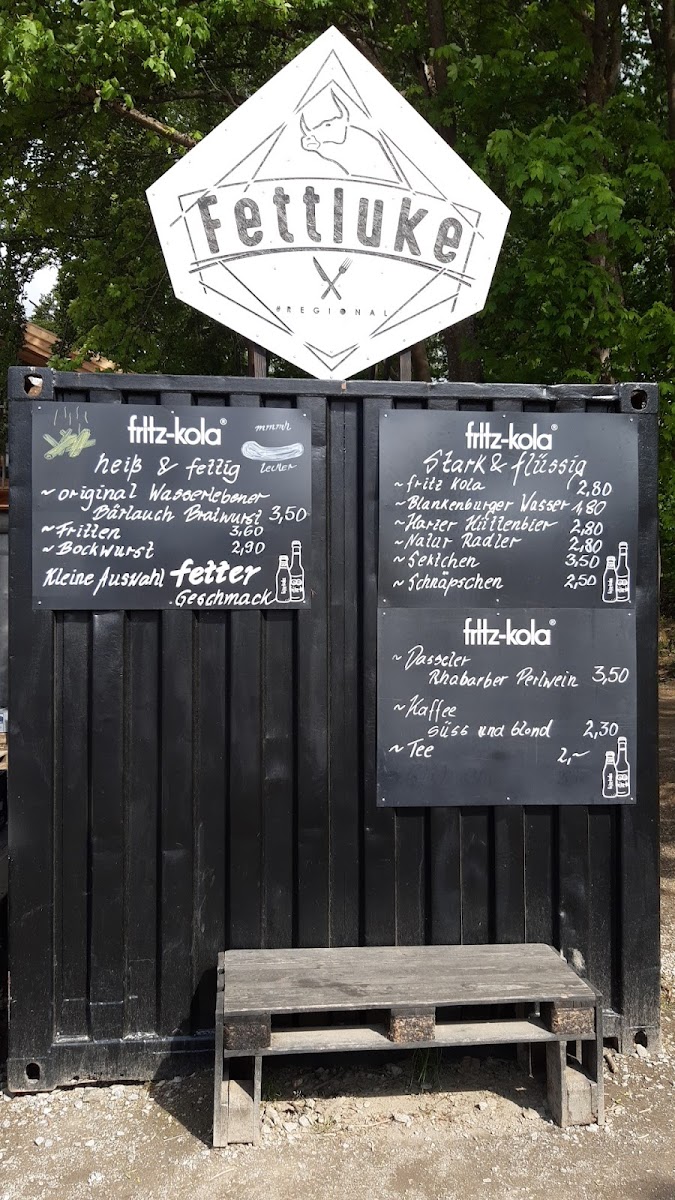 Fettluke
#REGIONAL
fritz-kola®
mmmh
lecker
heiß & fettig
~ original Wasserlebener
Bärlauch Bratwurst 3,50
~ Fritten 3,60
~ Bockwurst 2,90
Kleine Auswahl fetter
Geschmack
fritz-kola®
Stark & flüssig
~ fritz Kola 2,80
~ Blankenburger Wasser 1,80
~ Harzer Hüttenbier 2,80
~ Natur Radler 2,80
~ Sektchen 3,50
~ Schnäpschen 2,50
fritz-kola®
~ Dasseler
Rhabarber Perlwein 3,50
~ Kaffee
süss und blond 2,30
~ Tee 2,~